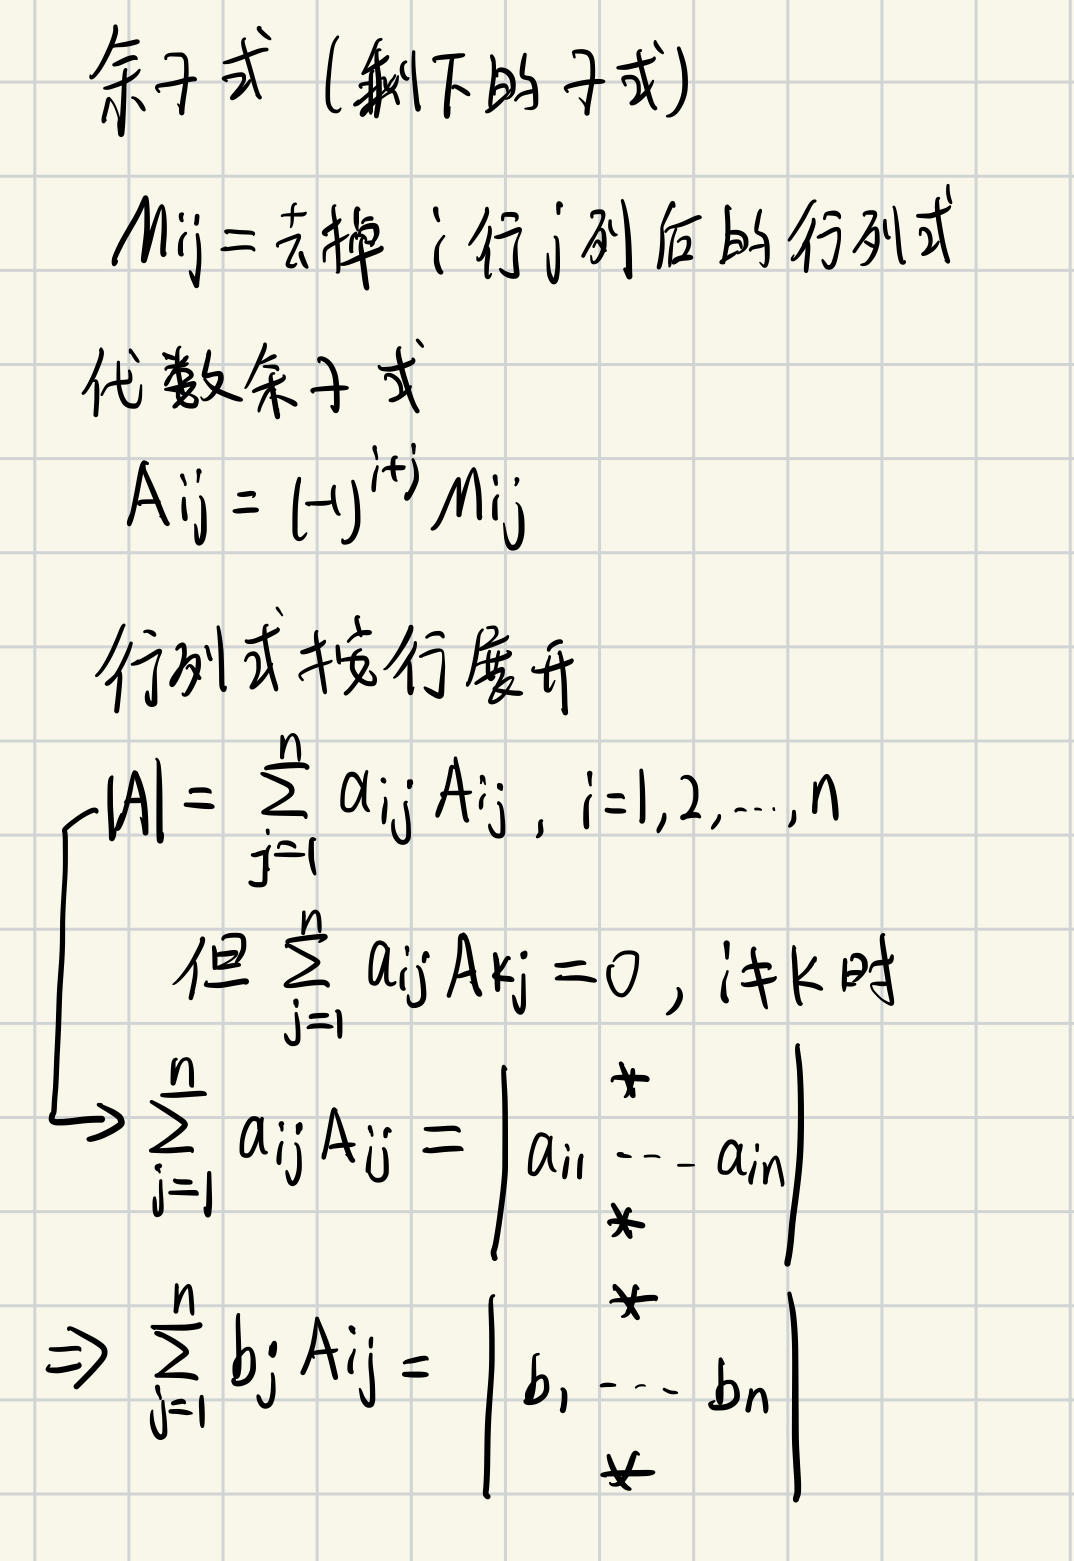 余子式 (剩下的子式)
Mij = 去掉 i 行 j 列后的行列式
代数余子式
Aij = (-1)^{i+j} Mij
行列式按行展开
|A| = \sum_{j=1}^{n} aij Aij, i=1,2,...,n
但 \sum_{j=1}^{n} aij Akj = 0, i≠k 时
→ \sum_{j=1}^{n} aij Aij = | * ; ai1 --- ain ; * |
⇒ \sum_{j=1}^{n} bj Aij = | * ; b1 --- bn ; * |